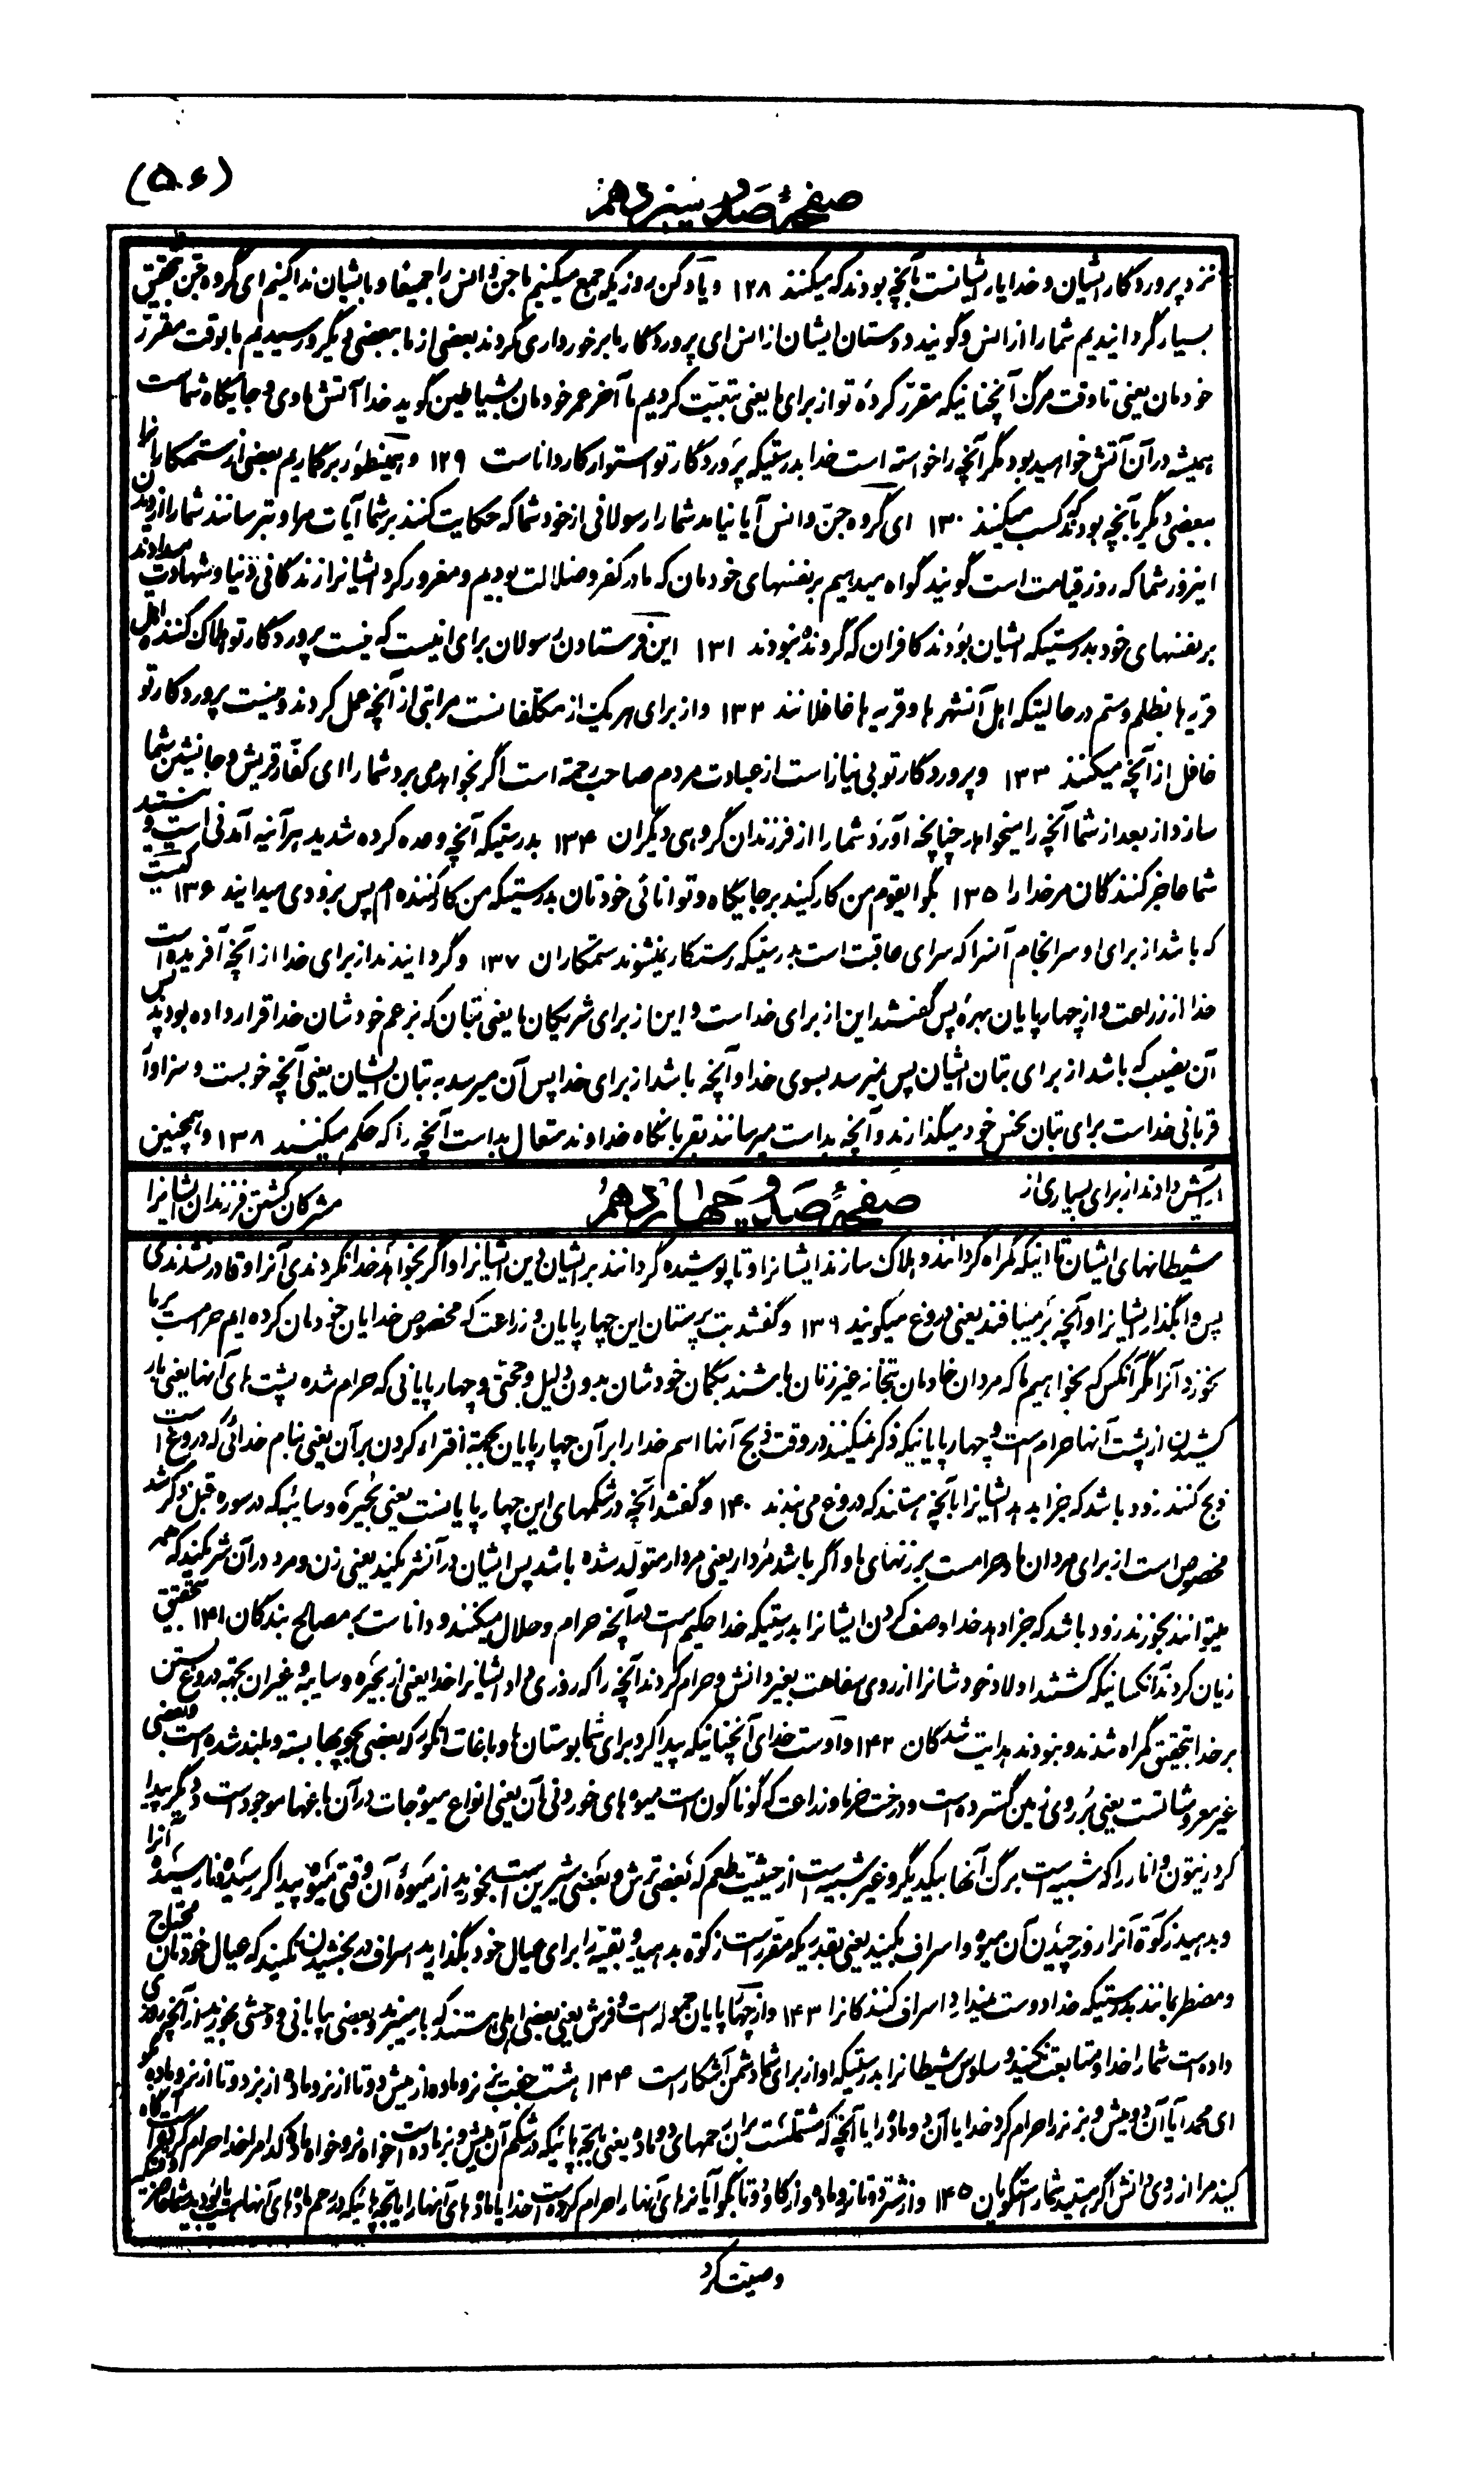 (۵۰۶)
صفحهٔ صد و سیزدهم
نزد پروردگار ایشان و خدا یار ایشانست بآنچه بودند که میکنند ۱۲۸ و یاد کن روزیکه جمع میکنیم ما جن و انس را جمیعا و بایشان ندا کنیم ای گروه جن بتحقیق
بسیار گردانیدیم شما را از انس و گویند دوستان ایشان از انس ای پروردگار ما برخورداری کردند بعضی از ما ببعضی دیگر و رسیدیم ما بوقت مقرّر
خودمان یعنی تا وقت مرگ آنچنانیکه مقرّر کردهٔ تو از برای ما یعنی تبعیّت کردیم تا آخر عمر خودمان بشیاطین گوید خدا آتش ماوی و جایگاه شماست
همیشه در آن آتش خواهید بود مگر آنچه را خواسته است خدا بدرستیکه پروردگار تو استوار کار داناست ۱۲۹ و همینطور برگماریم بعضی از ستمکارانرا
ببعضی دیگر بآنچه بودند که کسب میکنند ۱۳۰ ای گروه جنّ و انس آیا نیامد شما را رسولانی از خود شما که حکایت کنند بر شما آیات مرا و بترسانند شما را از دیدن
اینروز شما که روز قیامت است گویند گواه میدهیم بر نفسهای خودمان که ما در کفر و ضلالت بودیم و مغرور کرد ایشانرا زندگانی دنیا و شهادت میدادند
بر نفسهای خود بدرستیکه ایشان بودند کافران که گرونده نبودند ۱۳۱ این فرستادن رسولان برای اینست که نیست پروردگار تو هلاک کننده اهل
قریه‌ها بظلم و ستم در حالیتیکه اهل آنشهرها و قریه‌ها غافلانند ۱۳۲ و از برای هر یک از مکلّفانست مراتبی از آنچه عمل کردند و نیست پروردگار تو
غافل از آنچه میکنند ۱۳۳ و پروردگار تو بی نیاز است از عبادت مردم صاحب رحمة است اگر بخواهد می برد شما را ای کفّار قریش و جانشین شما
سازد از بعد از شما آنچه را میخواهد چنانچه آورد شما را از فرزندان گروهی دیگران ۱۳۴ بدرستیکه آنچه وعده کرده شدید هرآینه آمدنی است و نیستید
شما عاجز کنندگان مر خدا را ۱۳۵ بگو ایقوم من کار کنید بر جایگاه و توانائی خودتان بدرستیکه من کار کننده‌ام پس بزودی میدانید ۱۳۶ کیست
که باشد از برای او سرانجام آنسرا که سرای عاقبت است بدرستیکه رستگار نمیشوند ستمکاران ۱۳۷ و گردانیدند از برای خدا از آنچه آفریده است
خدا از زراعت و از چهارپایان بهره پس گفتند این از برای خداست و این از برای شریکان ما یعنی بتان که بزعم خودشان خدا قرار داده بودند پس
آن نصیب که باشد از برای بتان ایشان پس نمیرسد بسوی خدا و آنچه باشد از برای خدا پس آن میرسد به بتان ایشان یعنی آنچه خوبست و سزاوار
قربانی خداست برای بتان نحس خود میگذارند و آنچه بد است میرسانند بقربانگاه خداوند متعال بد است آنچه را که حکم میکنند ۱۳۸ و همچنین
آرایش دادند از برای بسیاری از
صفحهٔ صد و چهاردهم
مشرکان کشتن فرزندان ایشانرا
شیطانهای ایشان تا اینکه گمراه گردانند و هلاک سازند ایشانرا و تا پوشیده گردانند بر ایشان دین ایشانرا و اگر بخواهد خدا نکردندی آنرا و قادر نشدندی
پس واگذار ایشانرا و آنچه بر میبافند یعنی دروغ میگویند ۱۳۹ و گفتند بت پرستان این چهارپایان و زراعت که مخصوص خدایان خودمان کرده‌ایم حرامست بر ما
بخورد آنرا مگر آنکس که بخواهیم ما که مردان خادمان بتخانه غیر زنان باشند بگمان خودشان بدون دلیل و حجتی و چهارپایانی که حرام شده پشت‌های آنها یعنی بار
کشیدن از پشت آنها حرام است و چهارپایانیکه ذکر نمیکنند در وقت ذبح آنها اسم خدا را بر آن چهارپایان بجهة افتراء کردن بر آن یعنی بنام خدائی که دروغ است
ذبح کنند زود باشد که جزا بدهد ایشانرا بآنچه هستند که دروغ می بندند ۱۴۰ و گفتند آنچه در شکمهای این چهارپایانست یعنی بحیره و سائبه که در سوره قبل ذکر شد
مخصوص است از برای مردان ما و حرامست بر زنهای ما و اگر باشد مردار یعنی مردار متولّد شده باشد پس ایشان در آنشریکند یعنی زن و مرد در آن شریکند که همه
میتوانند بخورند زود باشد که جزا دهد خدا وصف کردن ایشانرا بدرستیکه خدا حکیم است در آنچه حرام و حلال میکنند و داناست بر مصالح بندگان ۱۴۱ بتحقیق
زیان کردند آنکسانیکه کشتند اولاد خودشانرا از روی سفاهت بغیر دانش و حرام کردند آنچه را که روزی داد ایشانرا خدا یعنی از بحیره و سایبه و غیر آن بجهة دروغ بستن
بر خدا بتحقیق گمراه شدند و نبودند هدایت شدگان ۱۴۲ و اوست خدای آنچنانیکه پیدا کرد برای شما بوستان‌ها و باغات انگور که بعضی بچوبها بسته و بلند شده است و بعضی
غیر معروشاتست یعنی بر روی زمین گسترده است و درخت خرما و زراعت که گوناگون است میوه‌های خوردنی آن یعنی انواع میوه‌جات در آن باغها موجود است و دیگر پیدا
کرد زیتون و انار را که شبیه است برگ آنها بیکدیگر و غیر شبیه است از حیثیّت طعم که بعضی ترش و بعضی شیرین است بخورید از میوهٔ آن وقتی میوه پیدا کرد رسیده و نارسیده آنرا
و بدهید زکوة آنرا روز چیدن آن میوه و اسراف نکنید یعنی بقدریکه مقرّر است زکوة بدهید و بقیّه را برای عیال خود بگذارید اسراف در بخشیدن نکنید که عیال خودتان محتاج
و مضطر بمانند بدرستیکه خدا دوست نمیدارد اسراف کنندگانرا ۱۴۳ و از چهارپایان حموله است و فرش یعنی بعضی اهلی هستند که بار میبرند و بعضی بیابانی و وحشی بخورید از آنچه روزی
داده است شما را خدا و متابعت نکنید وساوس شیطانرا بدرستیکه او از برای شما دشمن آشکار است ۱۴۴ هشت جفت نر و ماده از میش دو تا از نر و ماده و از بز دو تا از نر و ماده بگو
ای محمد آیا آن دو میش و بز نر را حرام کرد خدا یا آن دو ماده را یا آنچه که مشتملست بر آن رحمهای دو ماده یعنی بچّه‌هائیکه در شکم آن میش و بز ماده است خواه نر و خواه ماده کدام را خدا حرام کرده است آگاه
کنید مرا از روی دانش اگر هستید شما راستگویان ۱۴۵ و از شتر دو تا نر و ماده و از گاو دو تا بگو آیا نرهای آنها را حرام کرده است خدا یا ماده‌های آنها را یا بچّه‌هائیکه در رحم ماده‌های آنهاست یا بودید شما حاضر وقتیکه
وصیت کرد